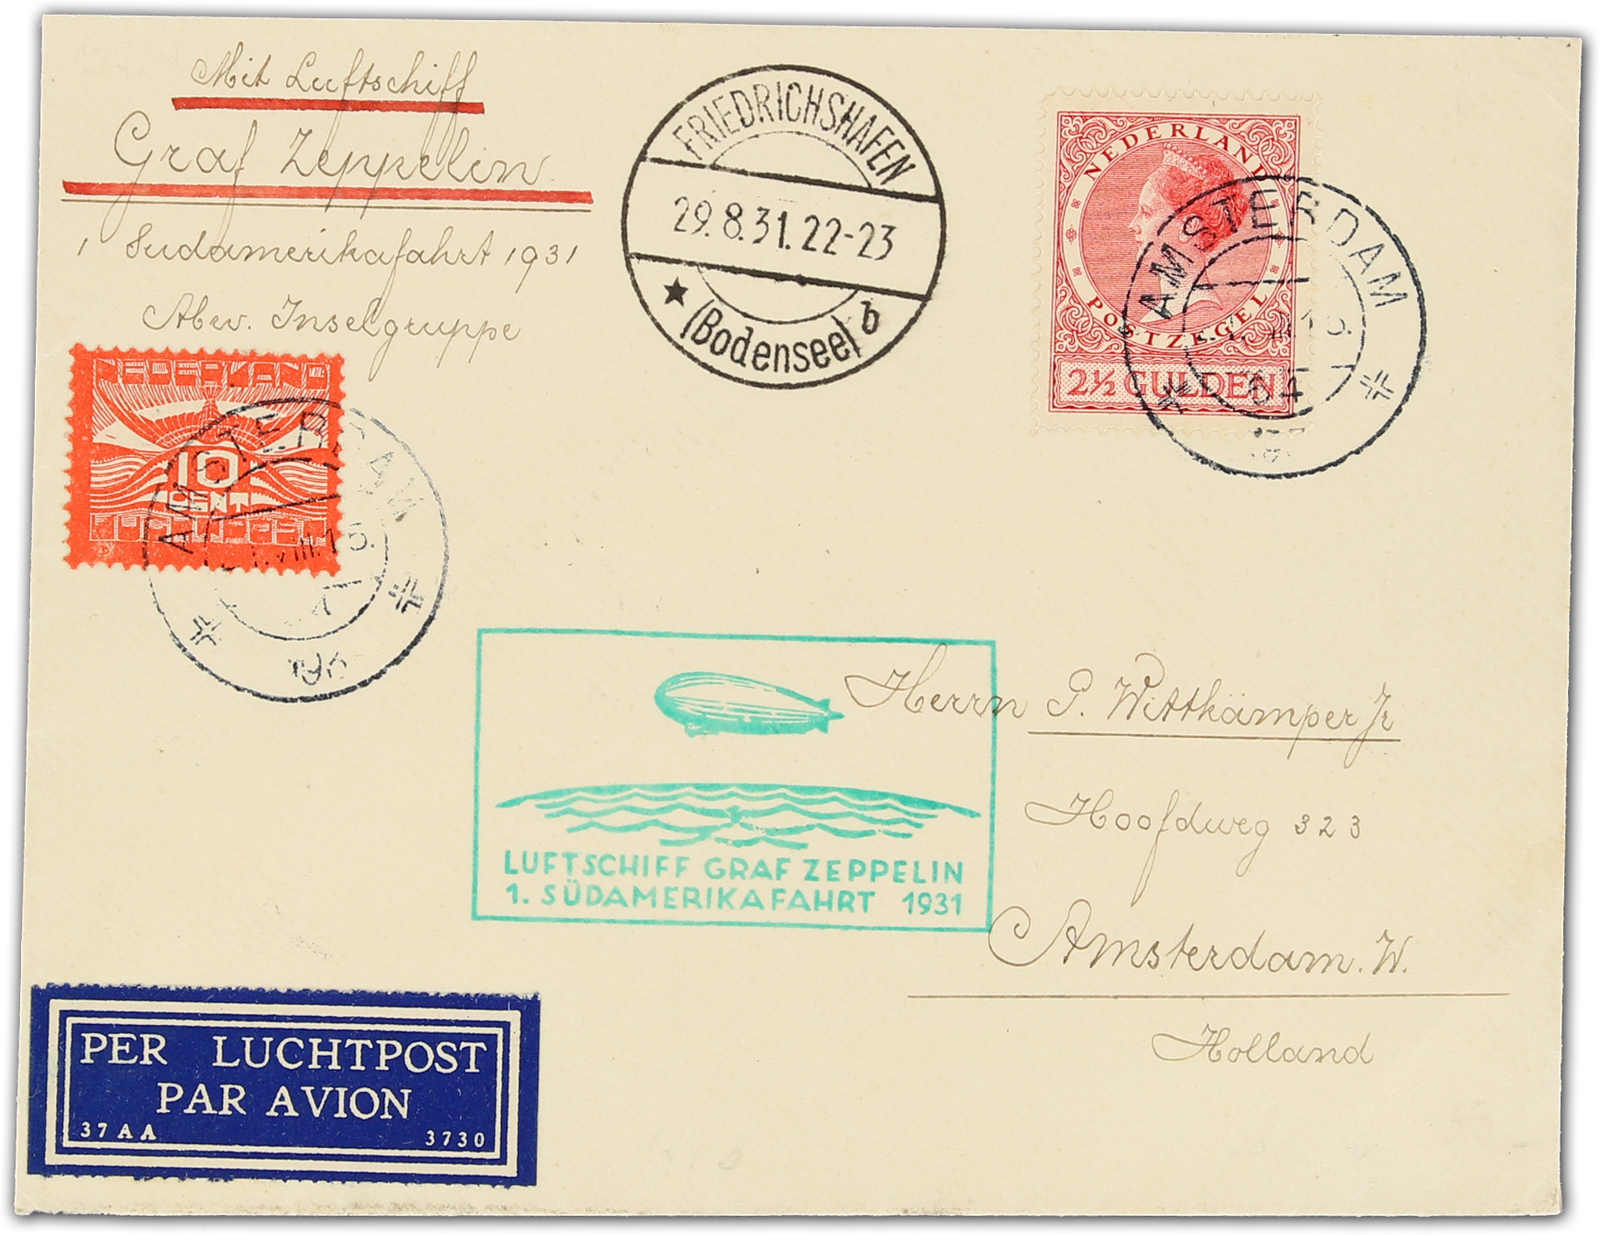 Mit Luftschiff
Graf Zeppelin
1 Südamerikafahrt 1931
Abw. Inselgruppe
FRIEDRICHSHAFEN
29.8.31.22-23
(Bodensee) b
NEDERLAND
POSTZEGEL
2½ GULDEN
AMSTERDAM
NEDERLAND
10
CENT
AMSTERDAM
LUFTSCHIFF GRAF ZEPPELIN
1. SÜDAMERIKAFAHRT 1931
Herrn P. Wittkämper Jr
Hoofdweg 323
Amsterdam. W.
Holland
PER LUCHTPOST
PAR AVION
37AA 3730